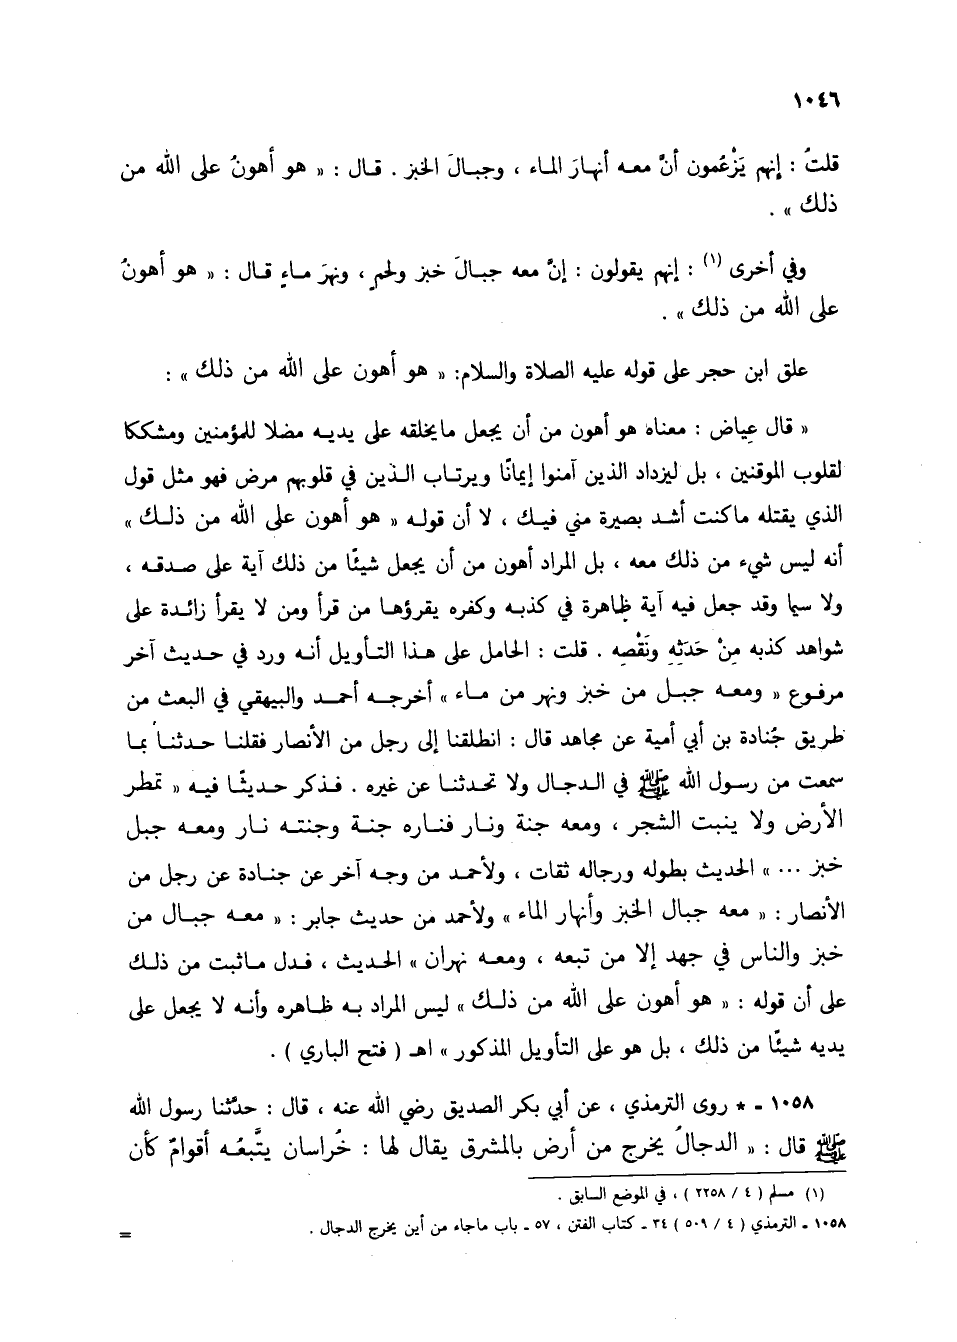 ١٠٤٦
قلتُ : إنهم يَزْعُمون أنَّ معه أنهارَ الماء ، وجبالَ الخبز . قال : « هو أهونُ على الله من
ذلك » .
وفي أخرى (١) : إنهم يقولون : إنَّ معه جبالَ خبز ولحمٍ ، ونهرَ ماءٍ قال : « هو أهونُ
على الله من ذلك » .
علق ابن حجر على قوله عليه الصلاة والسلام: « هو أهون على الله من ذلك » :
« قال عياض : معناه هو أهون من أن يجعل مايخلقه على يديه مضلا للمؤمنين ومشككا
لقلوب الموقنين ، بل ليزداد الذين آمنوا إيمانًا ويرتاب الذين في قلوبهم مرض فهو مثل قول
الذي يقتله ماكنت أشد بصيرة مني فيك ، لا أن قوله « هو أهون على الله من ذلك »
أنه ليس شيء من ذلك معه ، بل المراد أهون من أن يجعل شيئًا من ذلك آية على صدقه ،
ولا سيما وقد جعل فيه آية ظاهرة في كذبه وكفره يقرؤها من قرأ ومن لا يقرأ زائدة على
شواهد كذبه مِنْ حَدَثِهِ ونَقْصِه . قلت : الحامل على هذا التأويل أنه ورد في حديث آخر
مرفوع « ومعه جبل من خبز ونهر من ماء » أخرجه أحمد والبيهقي في البعث من
طريق جُنادة بن أبي أمية عن مجاهد قال : انطلقنا إلى رجل من الأنصار فقلنا حدثنا بما
سمعت من رسول الله ﷺ في الدجال ولا تحدثنا عن غيره . فذكر حديثًا فيه « تمطر
الأرض ولا ينبت الشجر ، ومعه جنة ونار فناره جنة وجنته نار ومعه جبل
خبز ... » الحديث بطوله ورجاله ثقات ، ولأحمد من وجه آخر عن جنادة عن رجل من
الأنصار : « معه جبال الخبز وأنهار الماء » ولأحمد من حديث جابر : « معه جبال من
خبز والناس في جهد إلا من تبعه ، ومعه نهران » الحديث ، فدل ماثبت من ذلك
على أن قوله : « هو أهون على الله من ذلك » ليس المراد به ظاهره وأنه لا يجعل على
يديه شيئًا من ذلك ، بل هو على التأويل المذكور » اهـ ( فتح الباري ) .
١٠٥٨ ـ * روى الترمذي ، عن أبي بكر الصديق رضي الله عنه ، قال : حدَّثنا رسول الله
ﷺ قال : « الدجالُ يخرج من أرض بالمشرق يقال لها : خُراسان يتَّبعُه أقوامٌ كأن
(١) مسلم ( ٤ / ٢٢٥٨ ) ، في الموضع السابق .
١٠٥٨ ـ الترمذي ( ٤ / ٥٠٩ ) ٣٤ ـ كتاب الفتن ، ٥٧ ـ باب ماجاء من أين يخرج الدجال .
=